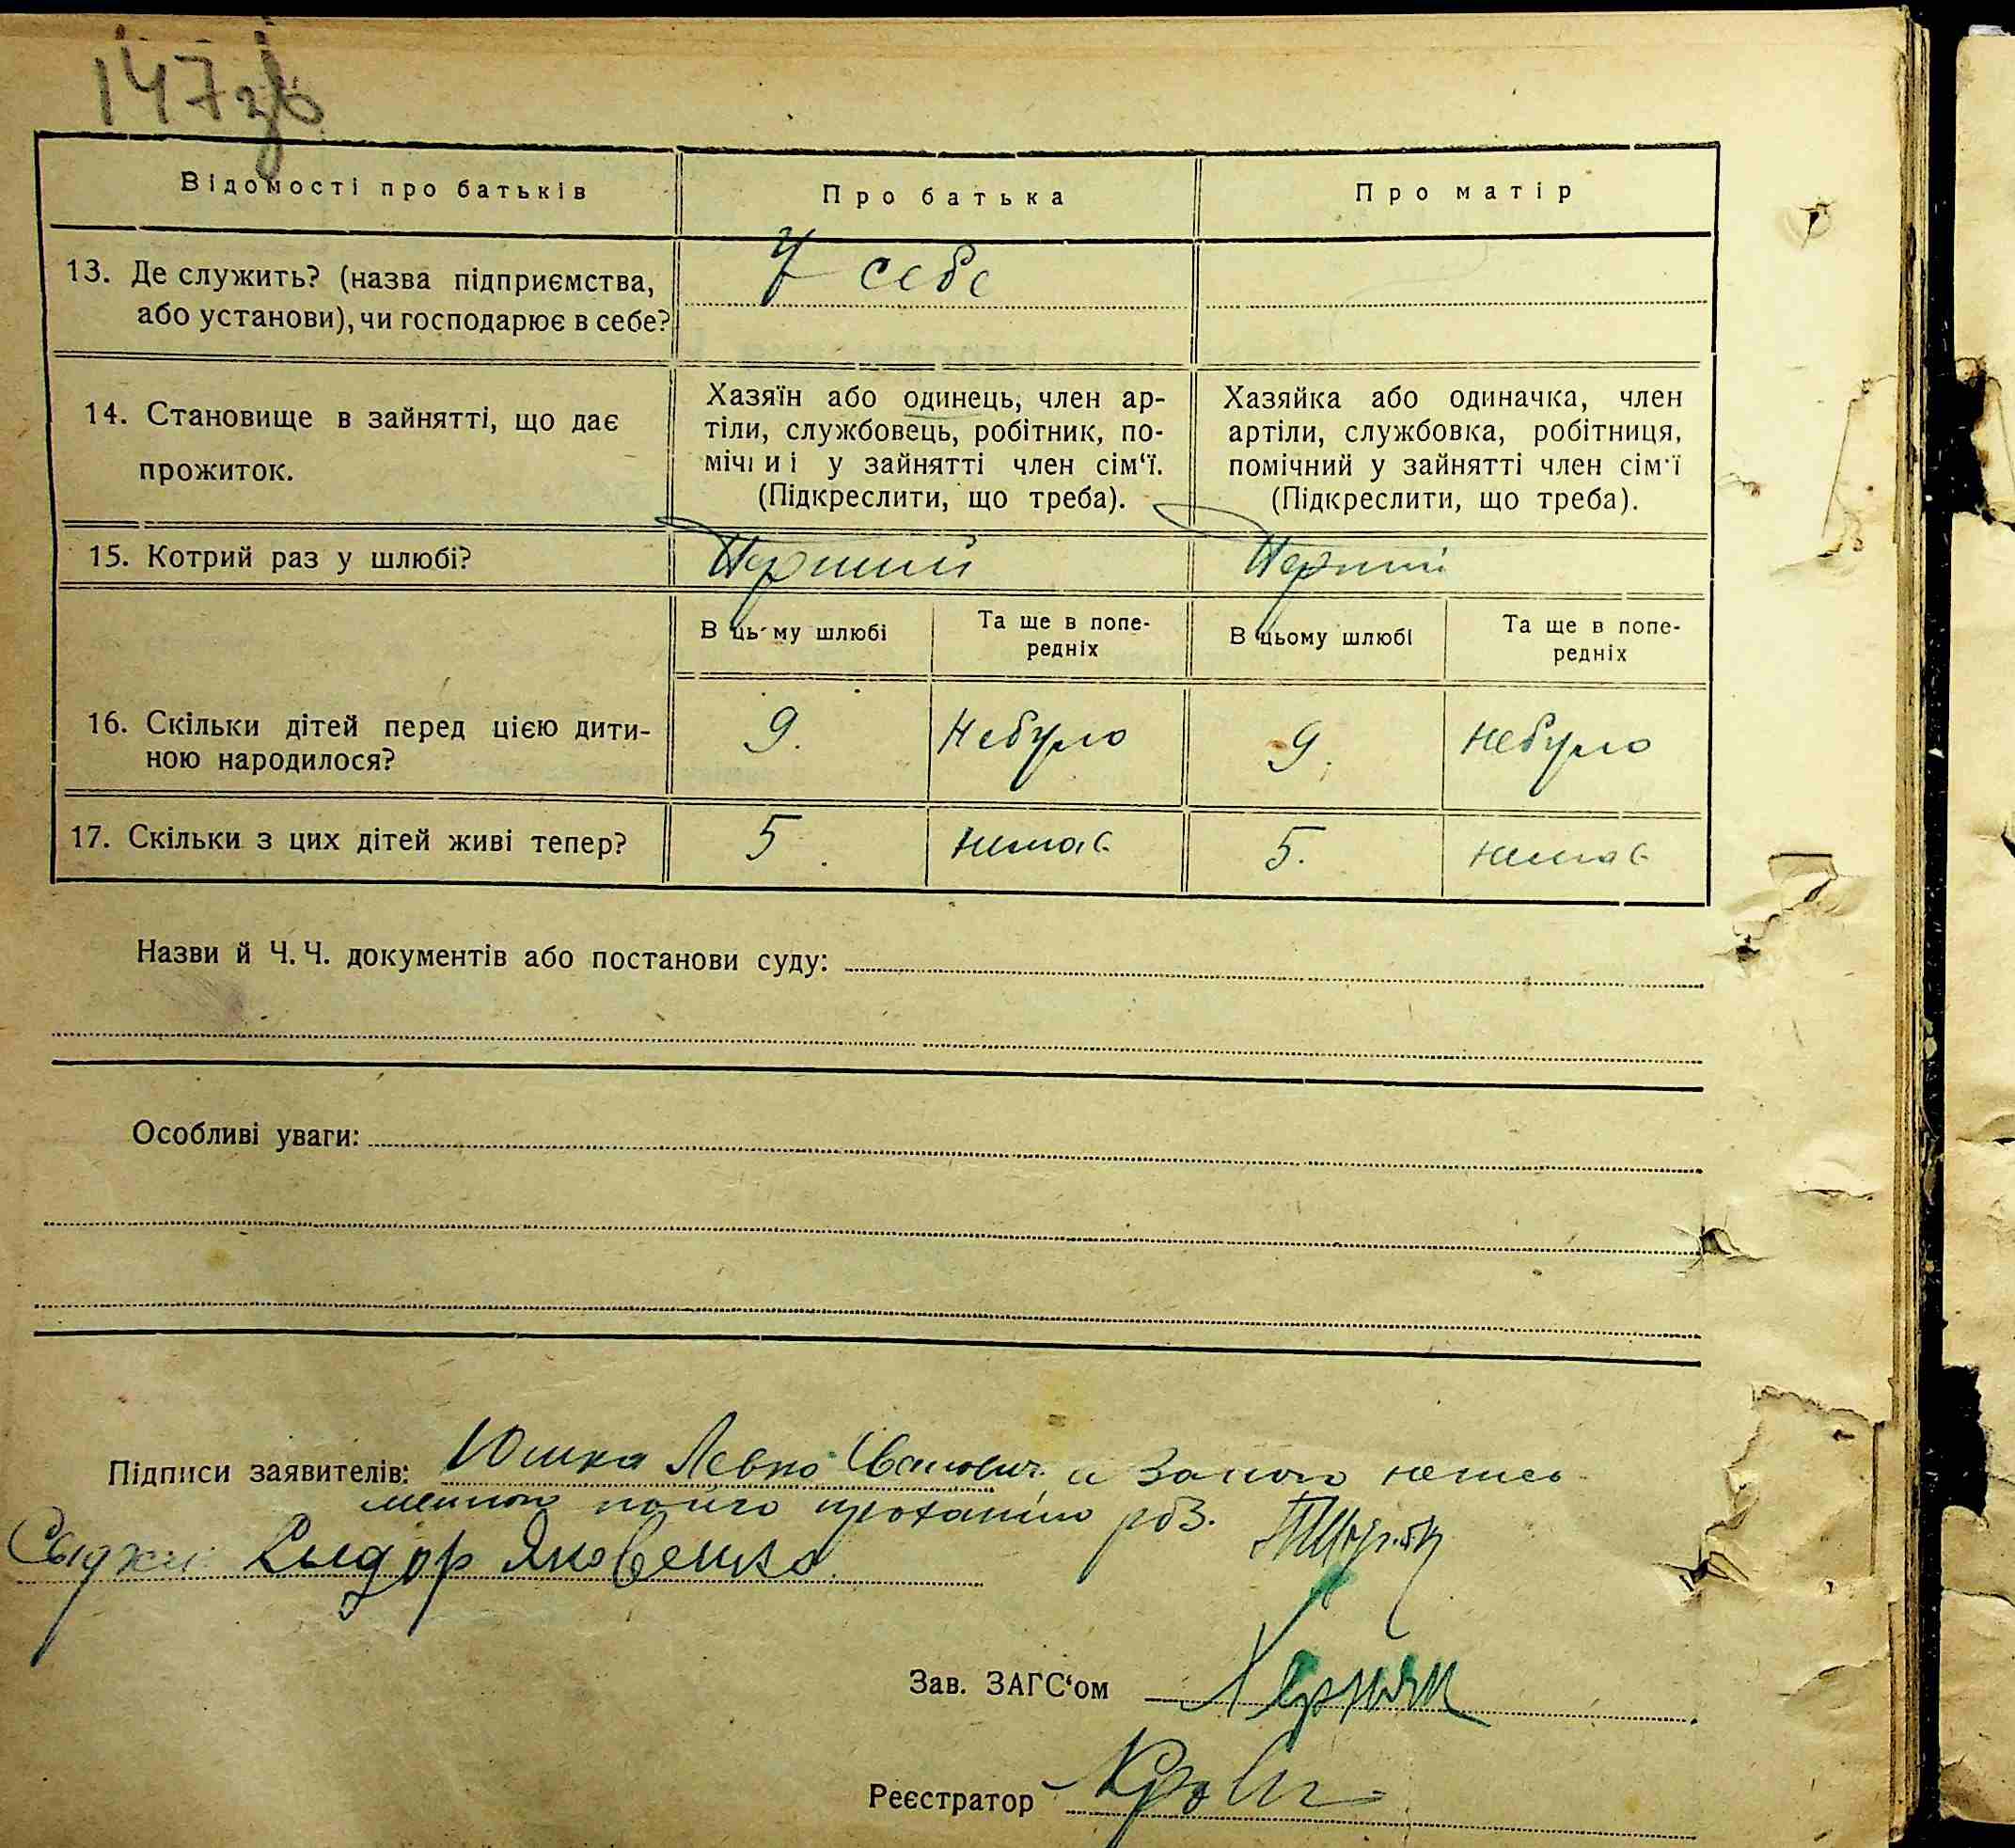 147зв
Відомості про батьків Про батька Про матір
13. Де служить? (назва підприємства, У себе
або установи), чи господарює в себе?
14. Становище в зайнятті, що дає
прожиток.
Хазяїн або одинець, член ар-
тіли, службовець, робітник, по-
мічн и і у зайнятті член сім‘ї.
(Підкреслити, що треба).
Хазяйка або одиначка, член
артіли, службовка, робітниця,
помічний у зайнятті член сім'ї
(Підкреслити, що треба).
15. Котрий раз у шлюбі? Перший Перший
В цьму шлюбі Та ще в попе-
редніх В цьому шлюбі Та ще в попе-
редніх
16. Скільки дітей перед цією дити-
ною народилося? 9. Небуло 9. Небуло
17. Скільки з цих дітей живі тепер? 5. немає 5. немає
Назви й Ч. Ч. документів або постанови суду:
Особливі уваги:
Підписи заявителів: Юшка Левко Іванович, а за його непись
менного по його проханню роз.
Свідки Сыдор Яковенко
Зав. ЗАГС‘ом
Реєстратор